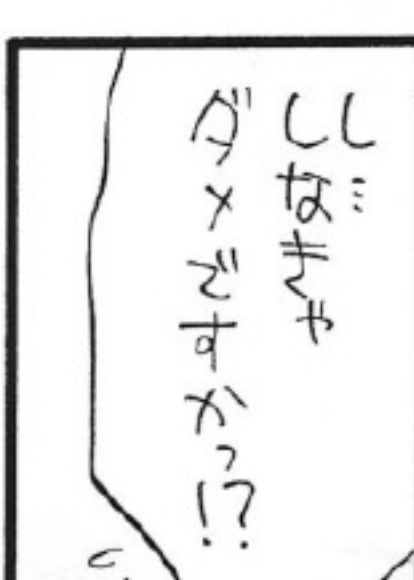 し…
しなきゃ
ダメですかっ!?